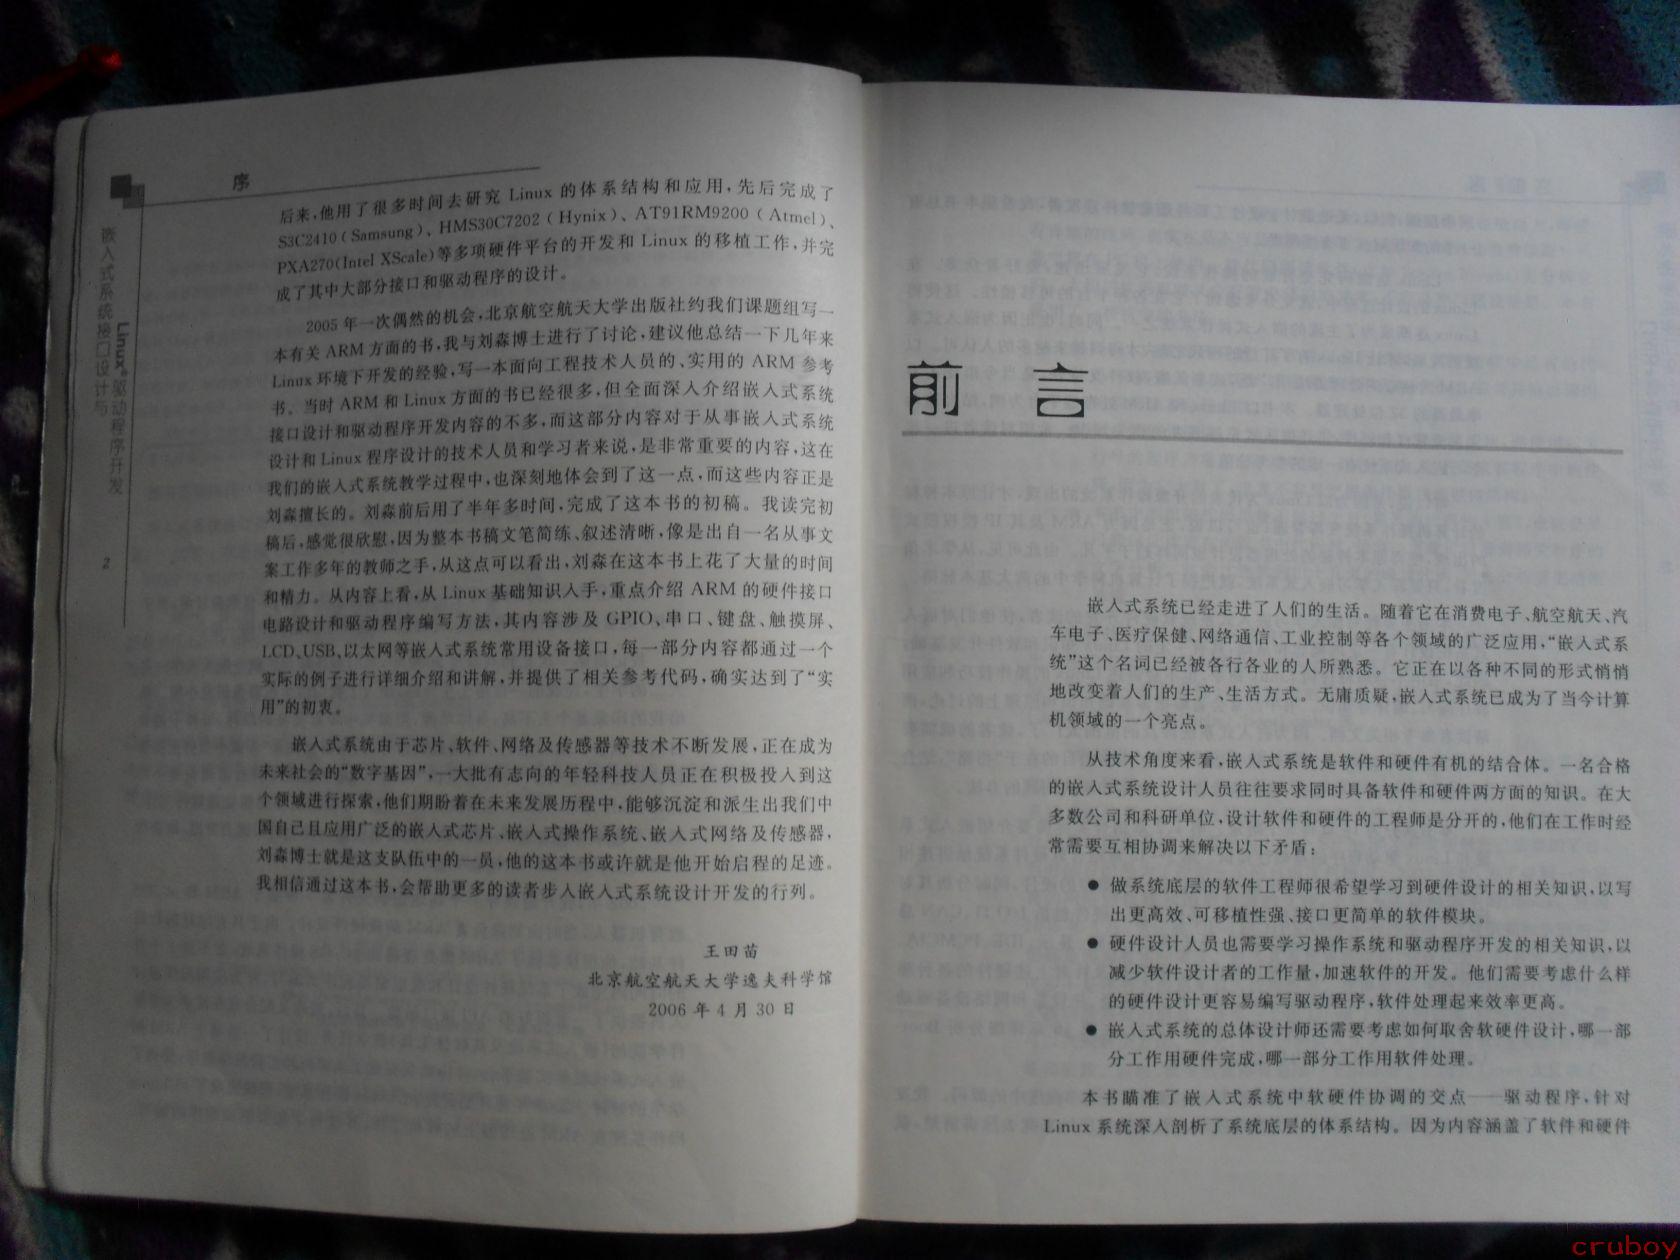 序
嵌入式系统接口设计与
Linux®驱动程序开发
2
后来,他用了很多时间去研究 Linux 的体系结构和应用,先后完成了
S3C2410(Samsung)、HMS30C7202(Hynix)、AT91RM9200(Atmel)、
PXA270(Intel XScale)等多项硬件平台的开发和 Linux 的移植工作,并完
成了其中大部分接口和驱动程序的设计。
2005 年一次偶然的机会,北京航空航天大学出版社约我们课题组写一
本有关 ARM 方面的书,我与刘淼博士进行了讨论,建议他总结一下几年来
Linux 环境下开发的经验,写一本面向工程技术人员的、实用的 ARM 参考
书。当时 ARM 和 Linux 方面的书已经很多,但全面深入介绍嵌入式系统
接口设计和驱动程序开发内容的不多,而这部分内容对于从事嵌入式系统
设计和 Linux 程序设计的技术人员和学习者来说,是非常重要的内容,这在
我们的嵌入式系统教学过程中,也深刻地体会到了这一点,而这些内容正是
刘淼擅长的。刘淼前后用了半年多时间,完成了这本书的初稿。我读完初
稿后,感觉很欣慰,因为整本书稿文笔简练、叙述清晰,像是出自一名从事文
案工作多年的教师之手,从这点可以看出,刘淼在这本书上花了大量的时间
和精力。从内容上看,从 Linux 基础知识入手,重点介绍 ARM 的硬件接口
电路设计和驱动程序编写方法,其内容涉及 GPIO、串口、键盘、触摸屏、
LCD、USB、以太网等嵌入式系统常用设备接口,每一部分内容都通过一个
实际的例子进行详细介绍和讲解,并提供了相关参考代码,确实达到了“实
用”的初衷。
嵌入式系统由于芯片、软件、网络及传感器等技术不断发展,正在成为
未来社会的“数字基因”,一大批有志向的年轻科技人员正在积极投入到这
个领域进行探索,他们期盼着在未来发展历程中,能够沉淀和派生出我们中
国自己且应用广泛的嵌入式芯片、嵌入式操作系统、嵌入式网络及传感器,
刘淼博士就是这支队伍中的一员,他的这本书或许就是他开始启程的足迹。
我相信通过这本书,会帮助更多的读者步入嵌入式系统设计开发的行列。
王田苗
北京航空航天大学逸夫科学馆
2006 年 4 月 30 日
前 言
嵌入式系统已经走进了人们的生活。随着它在消费电子、航空航天、汽
车电子、医疗保健、网络通信、工业控制等各个领域的广泛应用,“嵌入式系
统”这个名词已经被各行各业的人所熟悉。它正在以各种不同的形式悄悄
地改变着人们的生产、生活方式。无庸质疑,嵌入式系统已成为了当今计算
机领域的一个亮点。
从技术角度来看,嵌入式系统是软件和硬件有机的结合体。一名合格
的嵌入式系统设计人员往往要求同时具备软件和硬件两方面的知识。在大
多数公司和科研单位,设计软件和硬件的工程师是分开的,他们在工作时经
常需要互相协调来解决以下矛盾:
● 做系统底层的软件工程师很希望学习到硬件设计的相关知识,以写
出更高效、可移植性强、接口更简单的软件模块。
● 硬件设计人员也需要学习操作系统和驱动程序开发的相关知识,以
减少软件设计者的工作量,加速软件的开发。他们需要考虑什么样
的硬件设计更容易编写驱动程序,软件处理起来效率更高。
● 嵌入式系统的总体设计师还需要考虑如何取舍软硬件设计,哪一部
分工作用硬件完成,哪一部分工作用软件处理。
本书瞄准了嵌入式系统中软硬件协调的交点——驱动程序,针对
Linux 系统深入剖析了系统底层的体系结构。因为内容涵盖了软件和硬件
cruboy